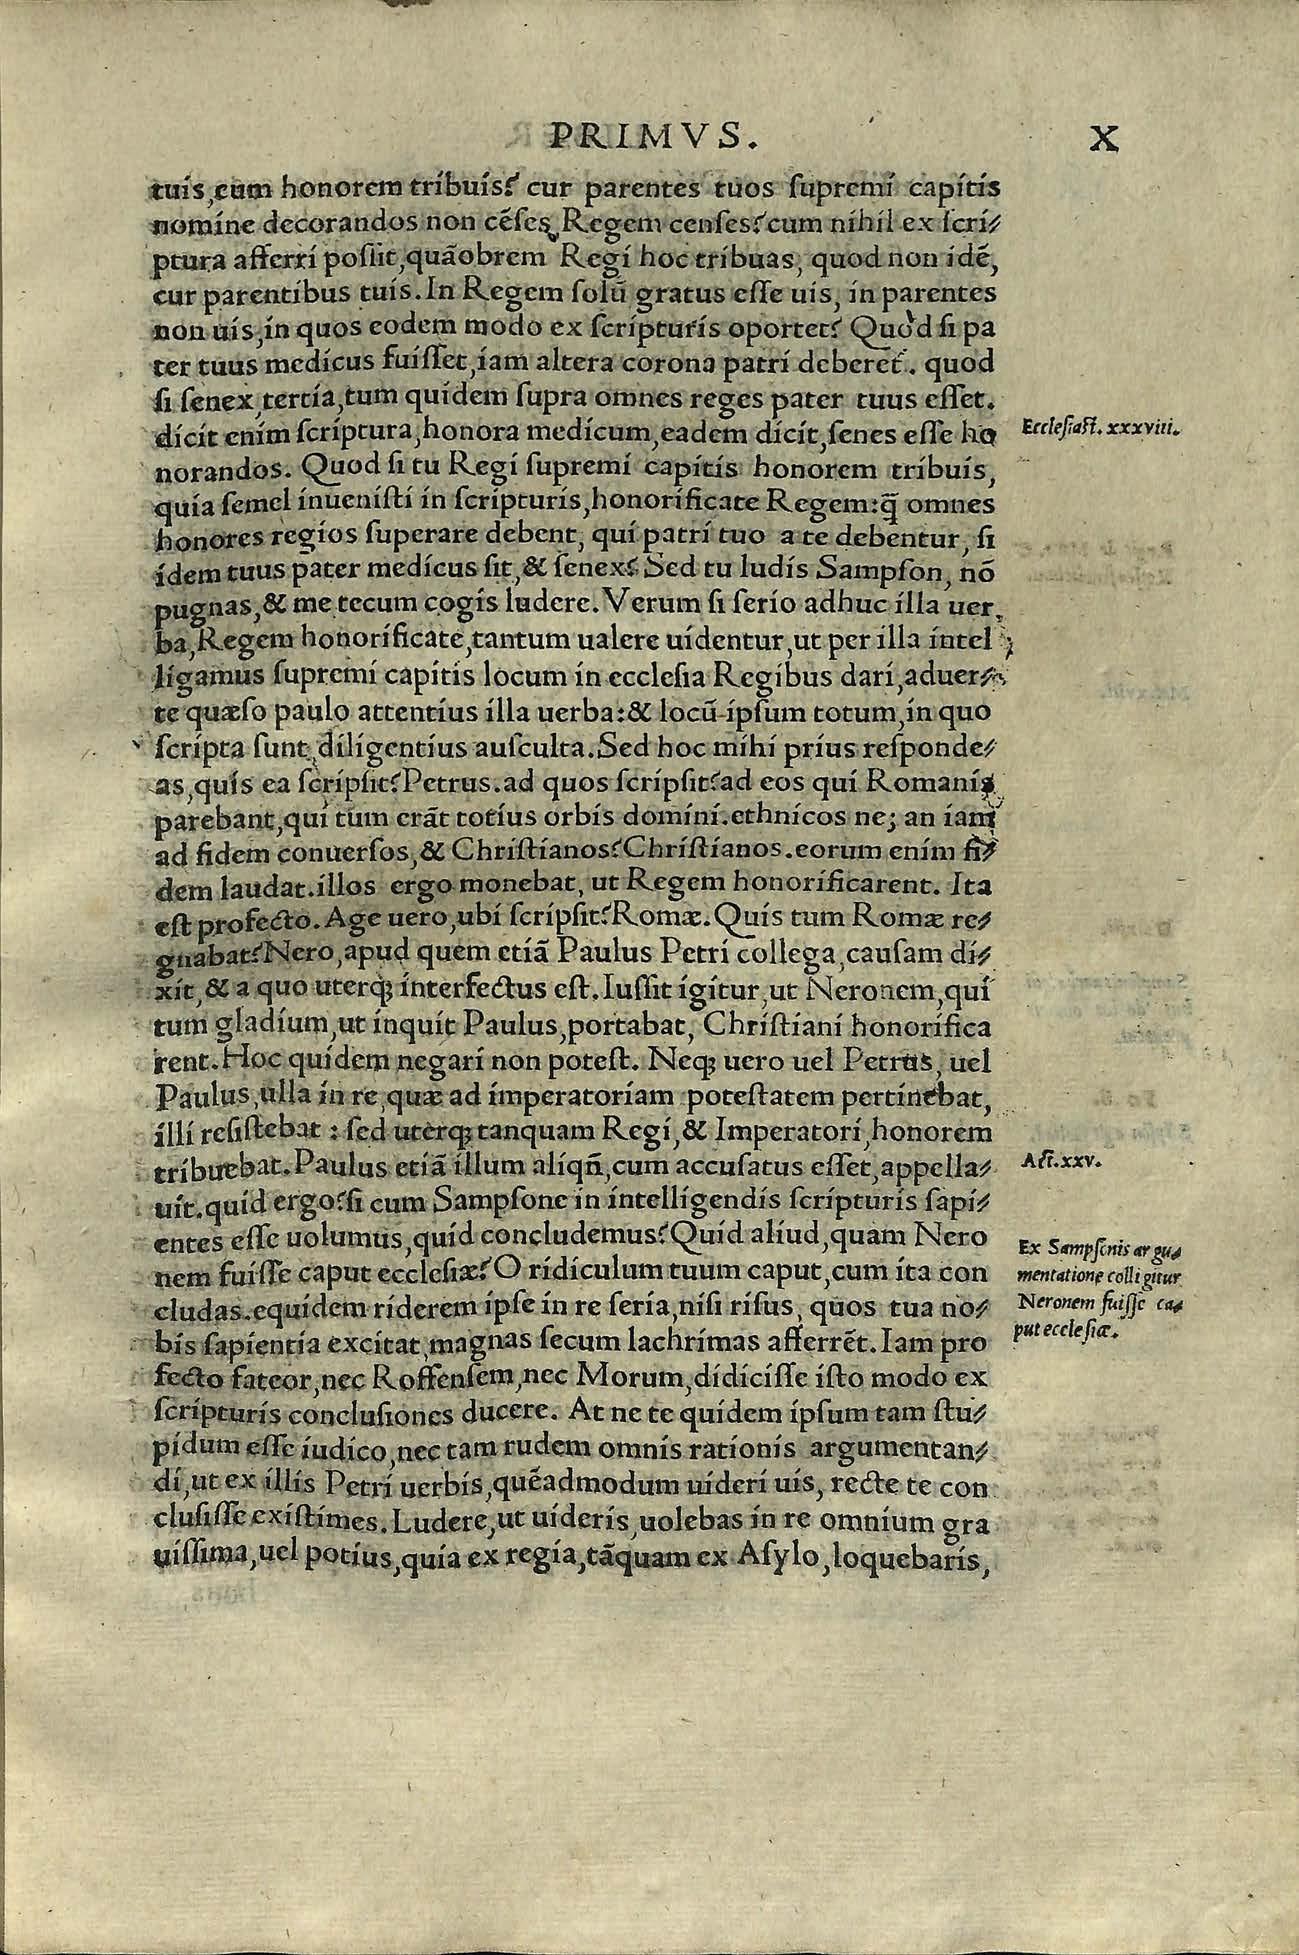 PRIMVS. X
tuis, eum honorem tribuis? cur parentes tuos supremi capitis
nomine decorandos non cēses, Regem censes? cum nihil ex scri-
ptura afferri possit, quāobrem Regi hoc tribuas, quod non idē,
cur parentibus tuis. In Regem solū gratus esse uis, in parentes
non uis, in quos eodem modo ex scripturis oportet? Quòd si pa
ter tuus medicus fuisset, iam altera corona patri deberet. quod
si senex, tertia, tum quidem supra omnes reges pater tuus esset.
dicit enim scriptura, honora medicum, eadem dicit, senes esse ho
Ecclesiast. xxxviii.
norandos. Quod si tu Regi supremi capitis honorem tribuis,
quia semel inuenisti in scripturis, honorificate Regem: q̄ omnes
honores regios superare debent, qui patri tuo a te debentur, si
idem tuus pater medicus sit, & senex? Sed tu ludis Sampson, nō
pugnas, & me tecum cogis ludere. Verum si serio adhuc illa uer
ba, Regem honorificate, tantum ualere uidentur, ut per illa intel
ligamus supremi capitis locum in ecclesia Regibus dari, aduer-
te quæso paulo attentius illa uerba: & locū ipsum totum, in quo
scripta sunt, diligentius ausculta. Sed hoc mihi prius responde-
as, quis ea scripsit? Petrus. ad quos scripsit? ad eos qui Romanis
parebant, qui tum erāt totius orbis domini. ethnicos ne; an iam
ad fidem conuersos, & Christianos? Christianos. eorum enim fi-
dem laudat. illos ergo monebat, ut Regem honorificarent. Ita
est profecto. Age uero, ubi scripsit? Romæ. Quis tum Romæ re-
gnabat? Nero, apud quem etiā Paulus Petri collega, causam di-
xit, & a quo uterq; interfectus est. Iussit igitur, ut Neronem, qui
tum gladium, ut inquit Paulus, portabat, Christiani honorifica
rent. Hoc quidem negari non potest. Neq; uero uel Petrus, uel
Paulus, ulla in re, quæ ad imperatoriam potestatem pertinebat,
illi resistebat: sed uterq; tanquam Regi, & Imperatori, honorem
tribuebat. Paulus etiā illum aliqñ, cum accusatus esset, appella-
Act. xxv.
uit. quid ergo? si cum Sampsone in intelligendis scripturis sapi-
entes esse uolumus, quid concludemus? Quid aliud, quam Nero
nem fuisse caput ecclesiæ? O ridiculum tuum caput, cum ita con
cludas. equidem riderem ipse in re seria, nisi risus, quos tua no-
Ex Sampsonis argu-
mentatione colligitur
Neronem fuisse ca-
put ecclesiæ.
bis sapientia excitat, magnas secum lachrimas afferrēt. Iam pro
fecto fateor, nec Roffensem, nec Morum, didicisse isto modo ex
scripturis conclusiones ducere. At ne te quidem ipsum tam stu-
pidum esse iudico, nec tam rudem omnis rationis argumentan-
di, ut ex illis Petri uerbis, quēadmodum uideri uis, recte te con
clusisse existimes. Ludere, ut uideris, uolebas in re omnium gra
uissima, uel potius, quia ex regia, tāquam ex Asylo, loquebaris,